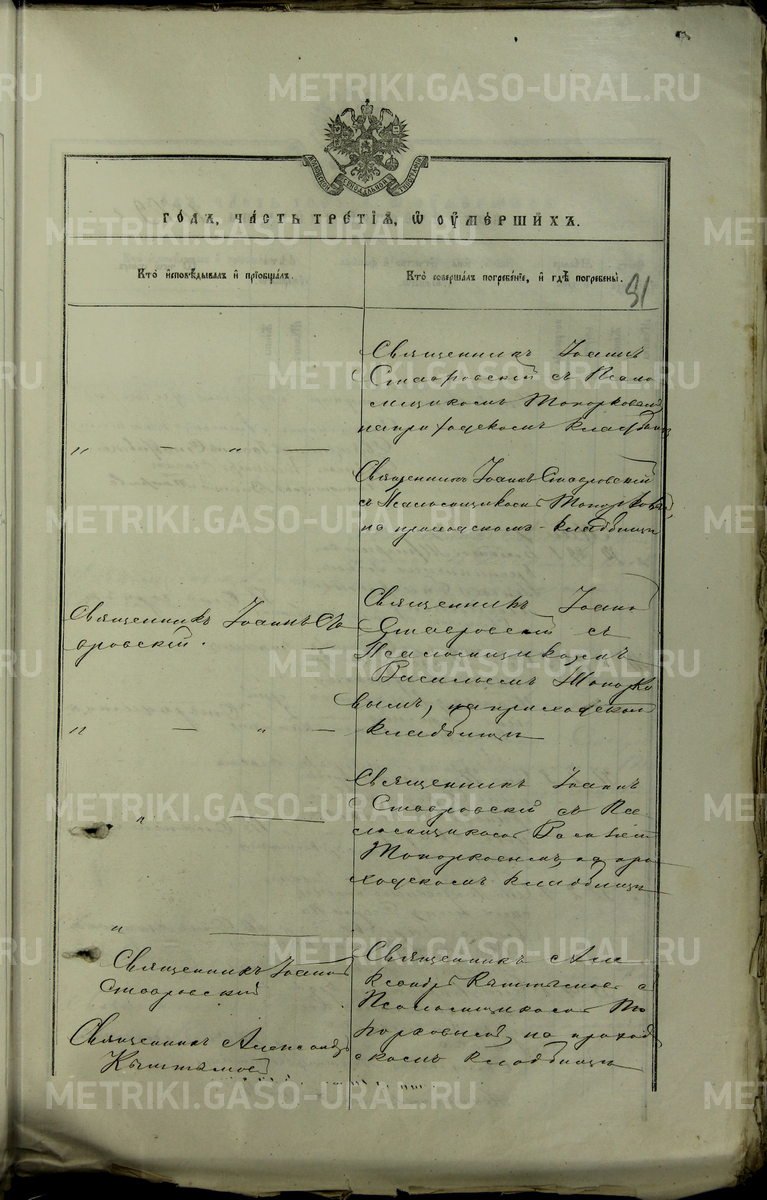 МОСКОВСКОЙ СѴНОДАЛЬНОЙ ТИПОГРАФІИ
ГО́ДА, ЧА́СТЬ ТРЕ́ТІѦ, Ѡ ОУМЕ́РШИХЪ.
Кто̀ и҆сповѣ́дывалъ и҆ прїѡбща́лъ.
Кто̀ соверша́лъ погребе́нїе, и҆ гдѣ̀ погребены̀.
31
Священникъ Іоаннъ
Ставровскій съ Псало
мщикомъ Топорковымъ
на приходскомъ кладбищѣ
" — " —
Священникъ Іоаннъ Ставровскій
съ Псаломщикомъ Топорковымъ,
на приходскомъ кладбищѣ
Священникъ Іоаннъ Ста
вровскій. —
Священникъ Іоаннъ
Ставровскій съ
Псаломщикомъ
Василіемъ Топорко
вымъ, на приходскомъ
кладбищѣ
" — " —
Священникъ Іоаннъ
Ставровскій съ Пса
ломщикомъ Василіемъ
Топорковымъ, на при
ходскомъ кладбищѣ
" —
"
Священникъ Іоаннъ
Ставровскій
Священникъ Александръ
Священникъ Але
ксандръ
Псаломщикомъ То
порковымъ, на приход
скомъ кладбищѣ
METRIKI.GASO-URAL.RU